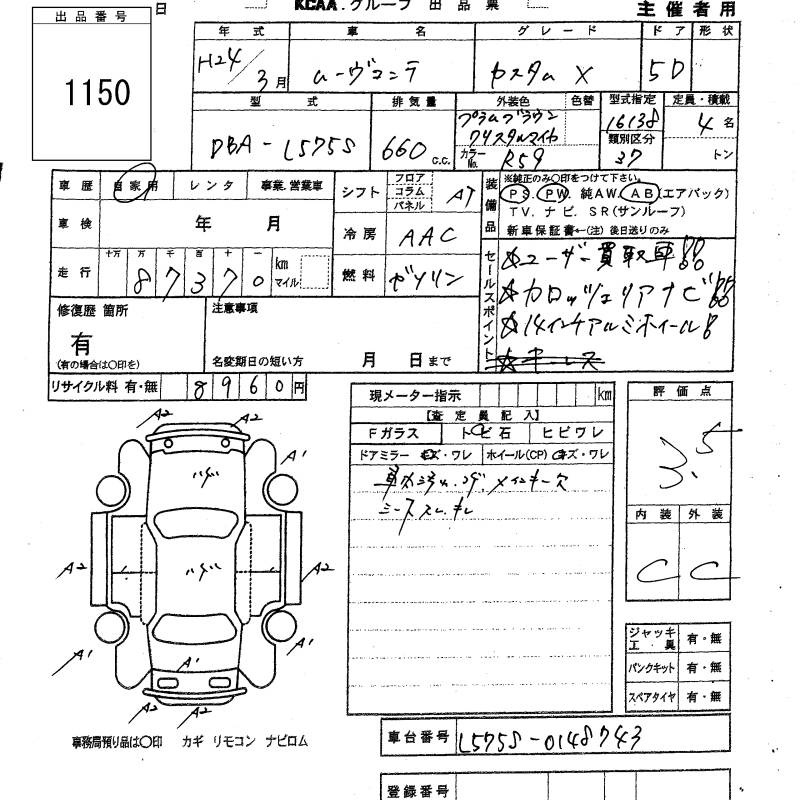 出品番号
1150
日
KCAA.グループ 出品票
主催者用
年式 車名 グレード ドア 形状
H24/3月 ムーヴコンテ カスタム X 5D
型式 排気量 外装色 色替 型式指定 定員・積載
DBA-L575S 660 c.c. プラムブラウン クリスタルマイカ 16138 4名
カラーNo. R59 類別区分 37 トン
車歴 自家用 レンタ 事業.営業車
シフト フロア コラム パネル AT
装備品 ※純正のみ○印をつけて下さい。
PS. PW. 純AW. AB(エアバック)
TV. ナビ. SR(サンルーフ)
新車保証書←(注) 後日送りのみ
車検 年 月
冷房 AAC
走行 十万 万 千 百 十 一 km マイル
87370
燃料 ガソリン
セールスポイント
☆ユーザー買取車!!
☆カロッツェリアナビ!!
☆14インチアルミホイール!!
☆キーレス
修復歴 箇所
有
(有の場合は○印を)
注意事項
名変期日の短い方 月 日まで
リサイクル料 有・無 8960円
現メーター指示 km
【査定員記入】
Fガラス トビ石 ヒビワレ
ドアミラー キズ・ワレ ホイール(CP) キズ・ワレ
メインキー欠
評価点
3.5
内装 外装
C C
A2 A2
A1
A1
A2 A2
A1 A1 A1
A2 A2
ジャッキ工具 有・無
パンクキット 有・無
スペアタイヤ 有・無
事務局預り品は○印 カギ リモコン ナビロム
車台番号 L575S-0148743
登録番号